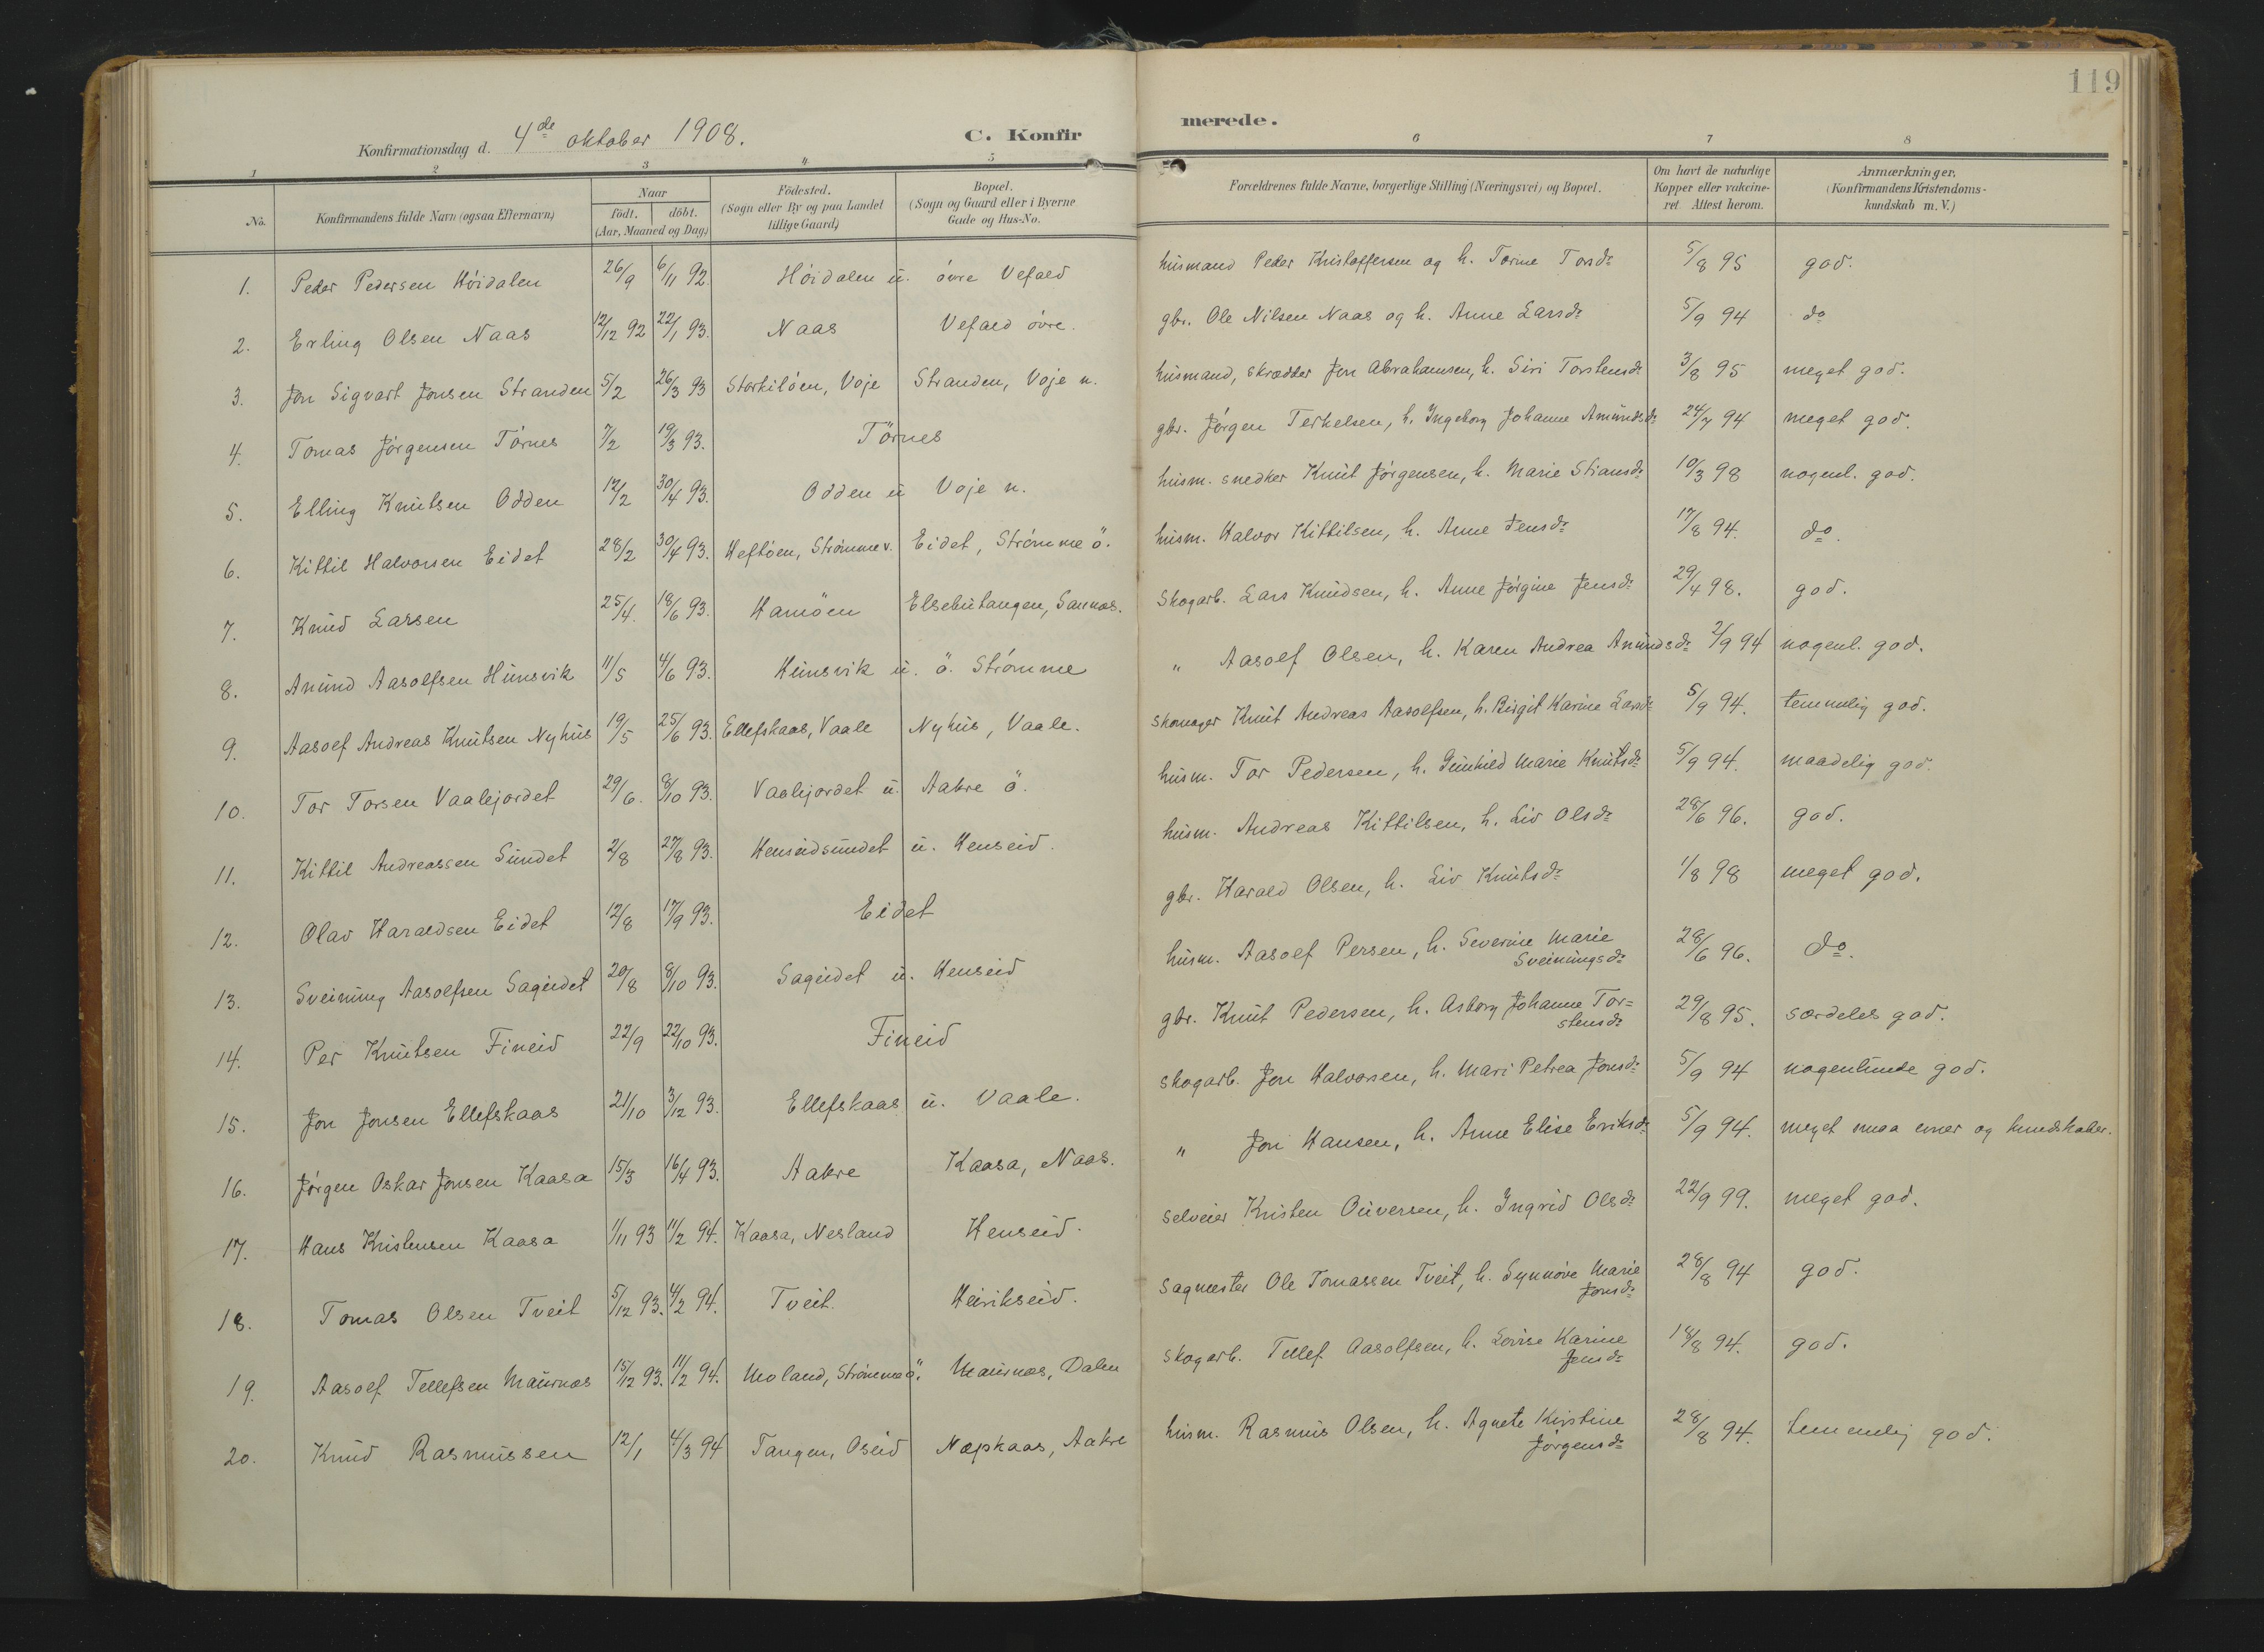 119
Konfirmationsdag d. 4de oktober 1908.
C. Konfirmerede.
1 2 3 4 5 6 7 8
No.
Konfirmandens fulde Navn (ogsaa Efternavn)
Naar
födt. döbt.
(Aar, Maaned og Dag)
Födested.
(Sogn eller By og paa Landet
tillige Gaard)
Bopæl.
(Sogn og Gaard eller i Byerne
Gade og Hus-No.
Forældrenes fulde Navne, borgerlige Stilling (Næringsvei) og Bopæl.
Om havt de naturlige
Kopper eller vakcine-
ret. Attest herom.
Anmærkninger,
(Konfirmandens Kristendoms-
kundskab m. V.)
1. Peder Pedersen Höidalen 26/9 6/11 92. Höidalen u. övre Vefald husmand Peder Kristoffersen og h. Torine Torsdr 5/8 95 god.
2. Erling Olsen Naas 12/12 92 22/1 93. Naas Vefald övre. gbr. Ole Nilsen Naas og h. Anne Larsdr 5/9 94 do
3. Jon Sigvart Jonsen Stranden 5/2 26/3 93 Storkilöen, Voje Stranden, Voje n. husmand, skrædder Jon Abrahamsen, h. Siri Torstensdr 3/8 95 meget god.
4. Tomas Jörgensen Törnes 7/2 19/3 93. Törnes gbr. Jörgen Terkelsen, h. Ingeborg Johanne Amundsdr 24/7 94 meget god.
5. Elling Knutsen Odden 12/2 30/4 93. Odden u Voje n. husm. snedker Knut Jörgensen, h. Marie Stiansdr 10/3 98 nogenl. god.
6. Kittil Halvorsen Eidet 28/2 30/4 93. Heftöen, Strömme v. Eidet, Strömme ö. husm. Halvor Kittilsen, h. Anne Jensdr 17/8 94. do.
7. Knud Larsen 25/4. 18/6 93. Hamöen Elsebutangen, Sannes. Skogarb. Lars Knudsen, h. Anne Jörgine Jensdr 29/4 98. god.
8. Anund Aasolfsen Hunsvik 11/5 4/6 93. Hunsvik u. ö. Strömme " Aasolf Olsen, h. Karen Andrea Anundsdr 2/9 94 nogenl. god.
9. Aasolf Andreas Knutsen Nyhus 19/5 25/6 93. Ellefskaas, Vaale Nyhus, Vaale. Skomager Knut Andreas Aasolfsen, h. Birgit Karine Larsdr 5/9 94. temmelig god.
10. Tor Torsen Vaalejordet 29/6. 8/10 93. Vaalejordet u. Aakre ö. husm. Tor Pedersen, h. Gunhild Marie Knutsdr 5/9 94. maadelig god.
11. Kittil Andreassen Sundet 2/8 27/8 93. Henseidsundet u. Henseid. husm. Andreas Kittilsen, h. Liv Olsdr 28/6 96. god.
12. Olav Haraldsen Eidet 12/8 17/9 93. Eidet gbr. Harald Olsen, h. Liv Knutsdr 1/8 98 meget god.
13. Sveinung Aasolfsen Sageidet 20/8 8/10 93. Sageidet u. Henseid husm. Aasolf Persen, h. Severine Marie
Sveinungsdr 28/6 96. do.
14. Per Knutsen Fineid 22/9 22/10 93. Fineid gbr. Knut Pedersen, h. Asborg Johanne Tor=
stensdr 29/8 95. særdeles god.
15. Jon Jonsen Ellefskaas 21/10 3/12 93. Ellefskaas u. Vaale. skogarb. Jon Halvorsen, h. Mari Petrea Jonsdr 5/9 94 nogenlunde god.
16. Jörgen Oskar Jonsen Kaasa 15/3 16/4 93. Aakre Kaasa, Naas. " Jon Hansen, h. Anne Elise Eriksdr 5/9 94. meget smaa evner og kundskaber.
17. Hans Kristensen Kaasa 1/11 93 11/2 94. Kaasa, Nesland Henseid. selveier Kristen Ouversen, h. Ingrid Olsdr 22/9 99. meget god.
18. Tomas Olsen Tveit 5/12 93. 4/2 94. Tveit. Heirikseid. Sagmester Ole Tomassen Tveit, h. Synnöve Marie
Jonsdr 28/8 94 god.
19. Aasolf Tellefsen Maurnæs 15/12 93. 11/2 94. Moland, Strömme ö. Maurnæs, Dalen Skogarb. Tellef Aasolfsen, h. Lovise Karine
Jensdr 18/8 94. god.
20. Knud Rasmussen 12/1 4/3 94 Tangen, Oseid Næpkaas, Aakre husm. Rasmus Olsen, h. Agnete Kirstine
Jörgensdr 28/8 94. temmelig god.